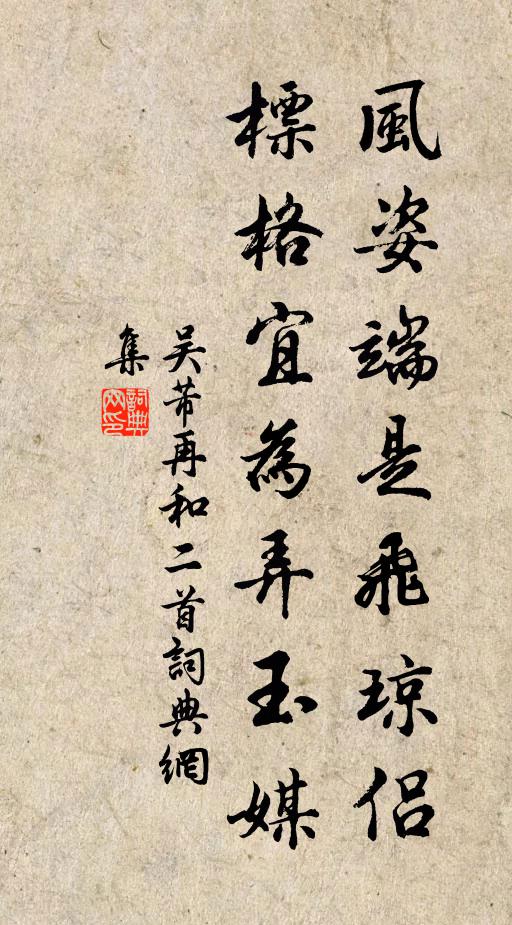 風姿端是飛瓊侶
標格宜為弄玉媒
吴芾再和二首詞典網
集
詞典網印